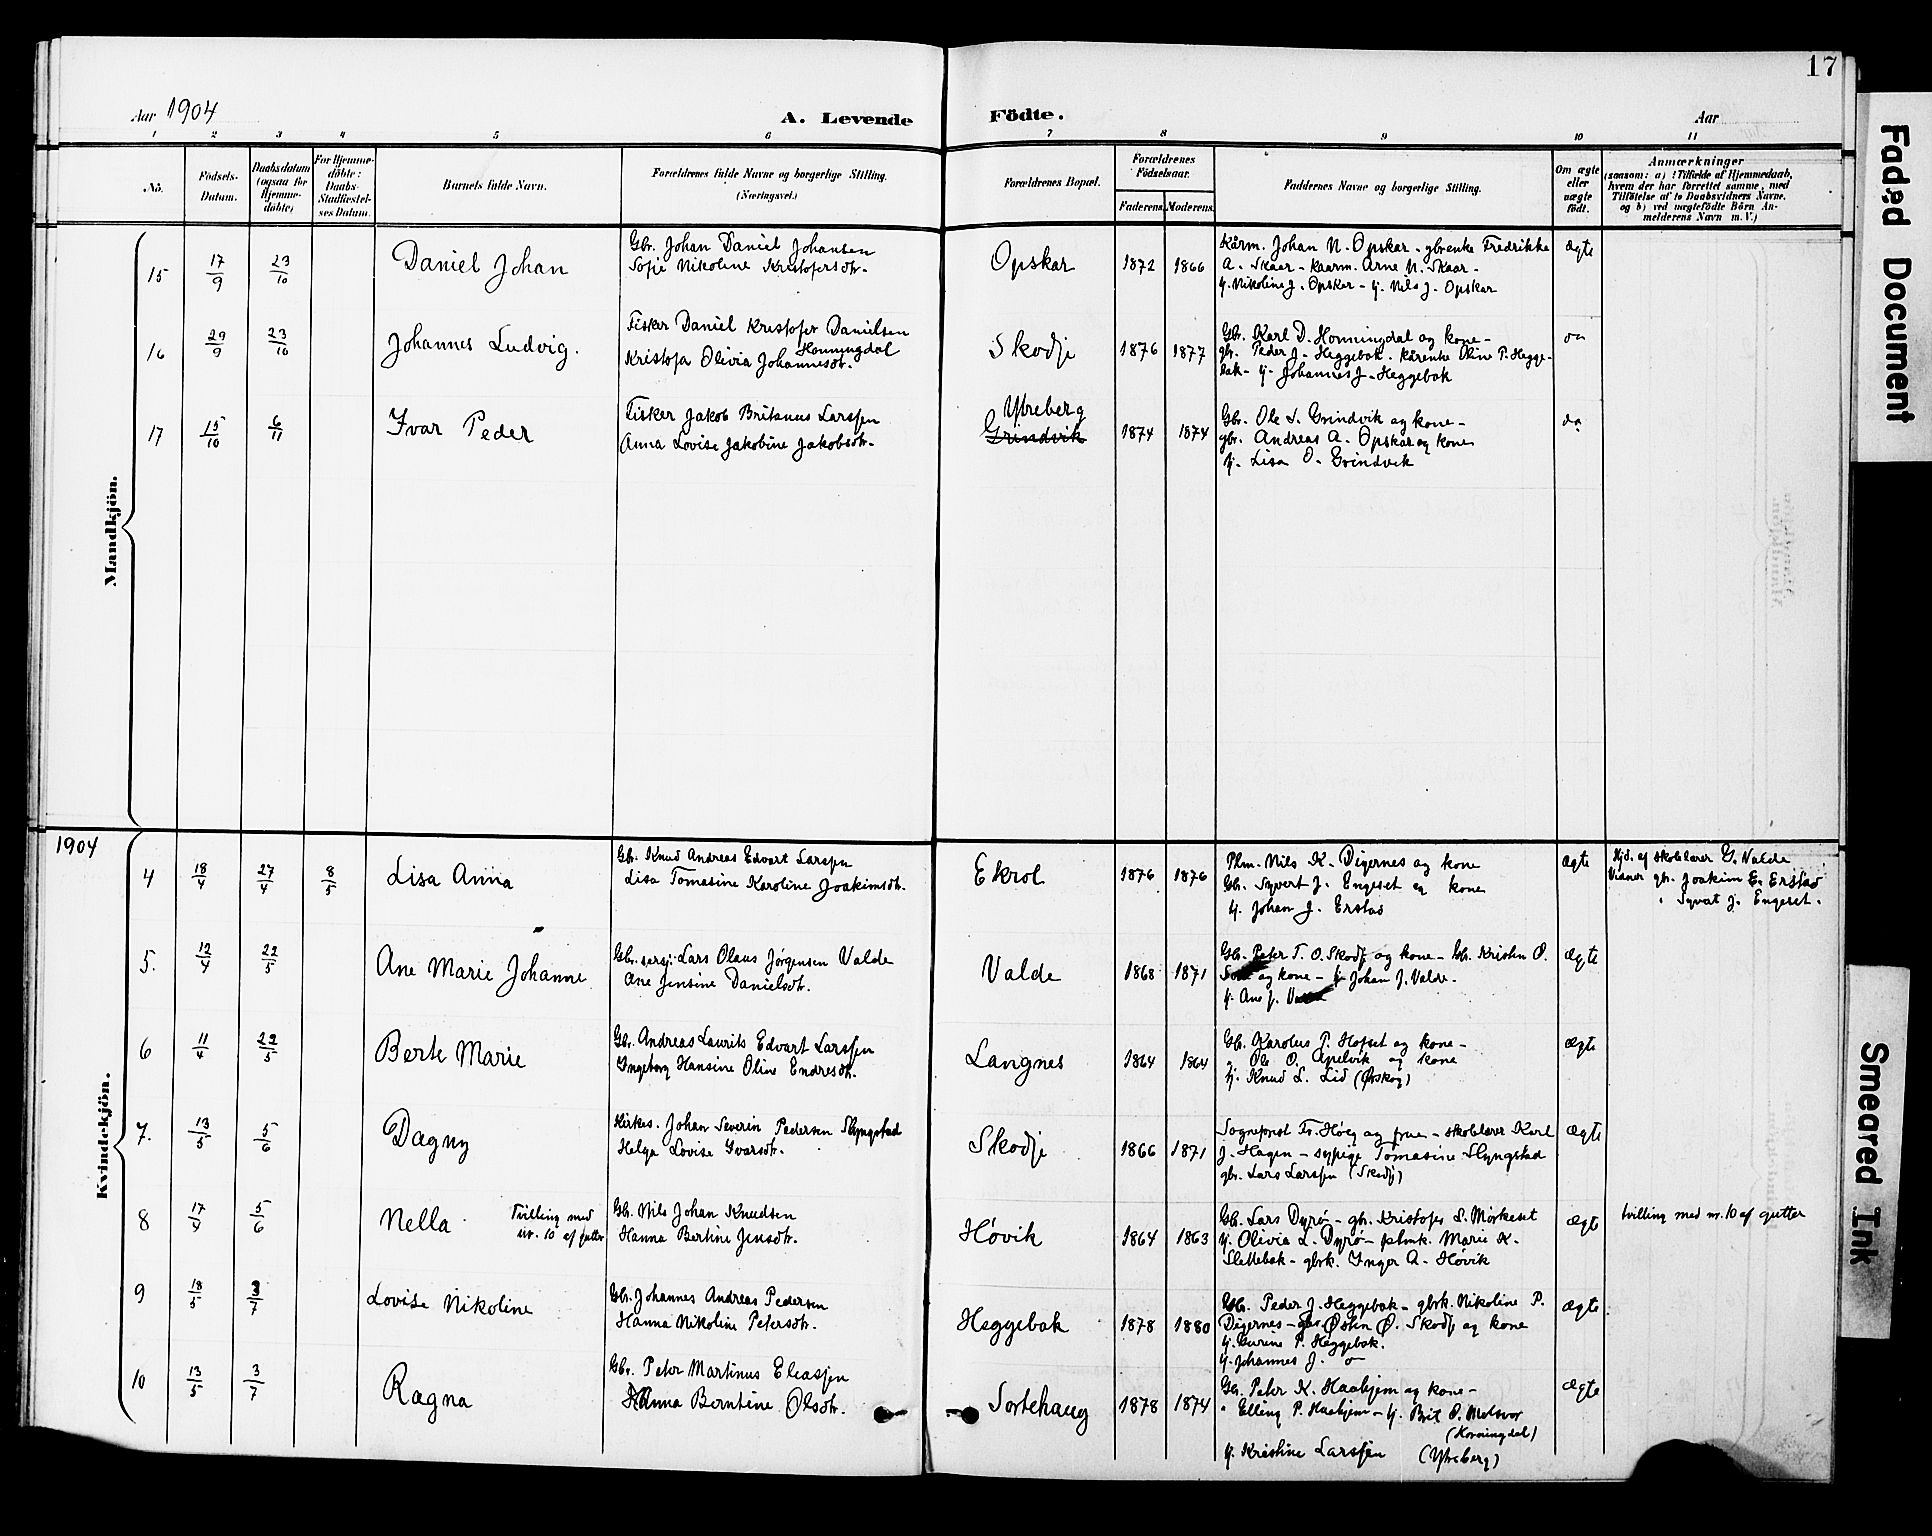 17
Aar 1904
A. Levende Födte.
Aar
1 2 3 4 5 6 7 8 9 10 11
No.
Födsels-Datum.
Daabsdatum (ogsaa for Hjemme-döbte)
For Hjemme-döbte: Daabs-Stadfæstel-ses Datum.
Barnets fulde Navn.
Forældrenes fulde Navne og borgerlige Stilling.
(Næringsvei.)
Forældrenes Bopæl.
Forældrenes Födselsaar.
Faderens. Moderens.
Faddernes Navne og borgerlige Stilling.
Om ægte eller uægte födt.
Anmærkninger
(saasom: a) i Tilfælde af Hjemmedaab,
hvem der har forrettet samme, med
Tilföielse af to Daabsvidners Navne,
og b) ved uægtefödte Börn An-
melderens Navn m. V.)
Mandkjön.
15 17/9 23/10 Daniel Johan
Gbr. Johan Daniel Johansen
Sofie Nikoline Kristofersdtr.
Opskar 1872 1866
Kårm. Johan N. Opskar - gbrenke Fredrikke
A. Skaar - kaarm. Arne N. Skaar -
ij. Nikoline J. Opskar - ij. Nils J. Opskar
ægte
16 29/9 23/10 Johannes Ludvig.
Fisker Daniel Kristofer Danielsen
Honningdal
Kristofa Olivia Johannesdtr.
Skodje 1876 1877
Gbr. Karl D. Honningdal og kone -
gbr. Peder J. Heggebak. kårenke Oline P. Hegge-
bak - ij. Johannes J. Heggebak
do
17 15/10 6/11 Ivar Peder
Fisker Jakob Britanus Larssen
Anna Lovise Jakobine Jakobsdtr.
Ytreberg
Grindvik
1874 1874
Gbr. Ole S. Grindvik og kone -
gbr. Andreas A. Opskar og kone
ij. Lisa O. Grindvik
do
1904
Kvindekjön.
4 18/4 27/4 8/5 Lisa Anna
Gbr. Knud Andreas Edvart Larssen
Lisa Tomasine Karoline Joakimsdtr.
Ekrol 1876 1876
Plm. Nils K. Digernes og kone
Gbr. Syvert J. Engeset og kone
ij. Johan J. Erstad
ægte
Hjd. af skolelærer G. Valde
Vidner gbr. Joakim E. Erstad
" Syvert J. Engeset.
5. 12/4 22/5 Ane Marie Johanne
Gbr. sersj. Lars Olaus Jørgensen Valde
Ane Jensine Danielsdtr.
Valde 1868 1871
Gbr. Peter T. O. Skodje og kone - Gbr. Kristen O.
og kone - ij. Johan J. Valde.
ij. Ane J.
ægte
6 11/4 22/5 Berte Marie
Gbr. Andreas Laurits Edvart Larssen
Ingeborg Hansine Oline Endresdtr.
Langnes 1864 1864
Gbr. Karolus P. Hofset og kone -
" Ole O. Apelvik og kone
ij. Knud L. Lid (Ørskog)
ægte
7. 13/5 5/6 Dagny
Kirkes. Johan Severin Pedersen Slyngstad
Helga Lovise Ivarsdtr.
Skodje 1866 1871
Sogneprest Fr. Høeg og frue - skolelærer Karl
J. Hagen - sypige Tomasine Slyngstad
gbr. Lars Larssen (Skodje)
ægte
8 17/4 5/6 Nella Tvilling med
nr. 10 af gutter
Gbr. Nils Johan Knudsen
Hanna Bertine Jensdtr.
Høvik 1864 1863
Gbr. Lars Dyrø - gbr. Kristofer S. Mørkeset
ij. Olivia L. Dyrø - plmk. Marie K.
Slettebak - gbrk. Inger A. Høvik
ægte
tvilling med nr. 10 af gutter
9 18/5 3/7 Lovise Nikoline
Gbr. Johannes Andreas Pedersen
Hanna Nikoline Petersdtr.
Heggebak 1878 1880
Gbr. Peder J. Heggebak - gbrk. Nikoline P.
Digernes - gbr. Østen Ø. Skodje og kone
ij. Gurine P. Heggebak.
ij. Johannes J. o
ægte
10 13/5 3/7 Ragna
Gbr. Peter Martinus Eleassen
Anna Berntine Olsdtr.
Sortehaug 1878 1874
Gbr. Peter K. Haahjem og kone -
" Elling P. Haahjem - ij. Brit P. Molsvor
(Honningdal)
ij. Kristine Larssen (Ytreberg)
ægte
Faded Document
Smeared Ink